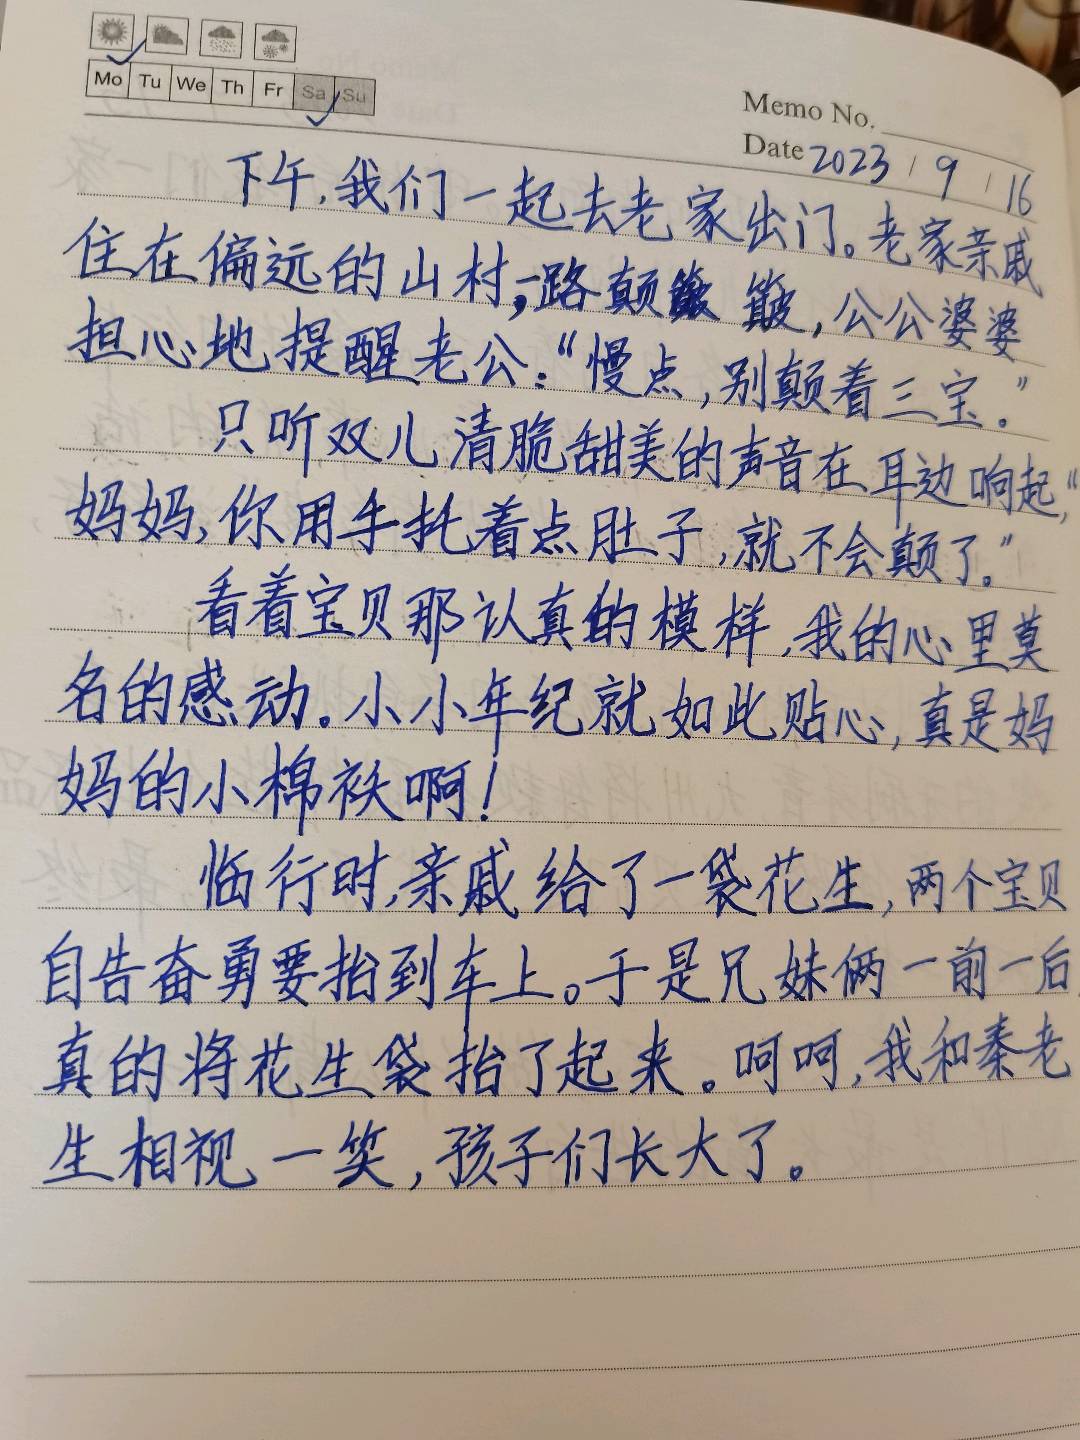 Mo Tu We Th Fr Sa Su
Memo No.
Date 2023 / 9 / 16
下午,我们一起去老家出门。老家亲戚
住在偏远的山村,一路颠簸,公公婆婆
担心地提醒老公:“慢点,别颠着三宝。”
只听双儿清脆甜美的声音在耳边响起,“
妈妈,你用手托着点肚子,就不会颠了。”
看着宝贝那认真的模样,我的心里莫
名的感动。小小年纪就如此贴心,真是妈
妈的小棉袄啊!
临行时,亲戚给了一袋花生,两个宝贝
自告奋勇要抬到车上。于是兄妹俩一前一后,
真的将花生袋抬了起来。呵呵,我和秦老
生相视一笑,孩子们长大了。